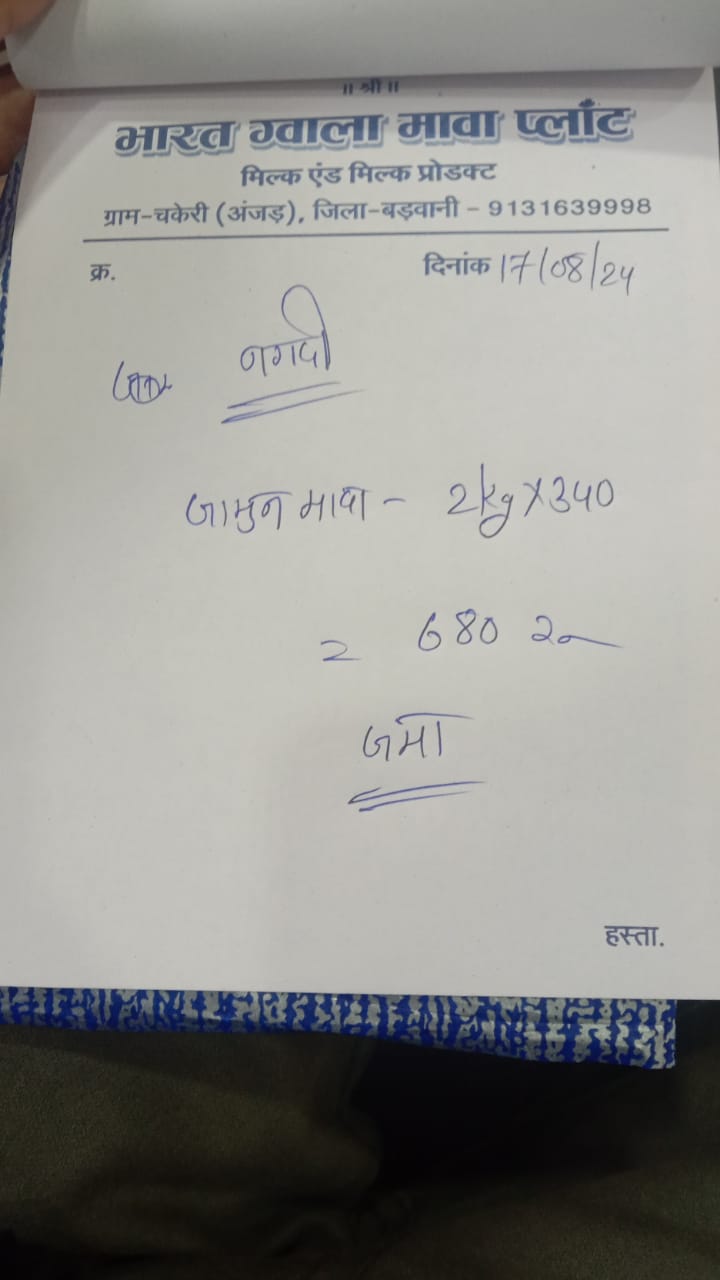 ॥ श्री ॥
भारत ग्वाला मावा प्लाँट
मिल्क एंड मिल्क प्रोडक्ट
ग्राम-चकेरी (अंजड़), जिला-बड़वानी - 9131639998
क्र. दिनांक 17/08/24
नगदी
जामुन मावा - 2kg x 340
= 680 रु
जमा
हस्ता.